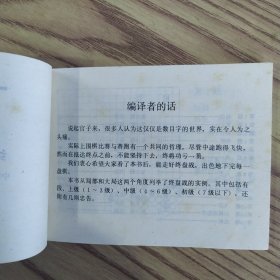 编译者的话
说起官子来，很多人认为这仅仅是数目字的世界，实在令人为之
头痛。
实际上围棋比赛与赛跑有一个共同的哲理，尽管中途跑得飞快，
然而在抵达终点之前，不能坚持下去，终将功亏一篑。
我们衷心希望大家看了本书后，能走好终盘战，出色地下完每一
盘棋。
本书从局部和大局这两个角度列举了终盘战的实例。其中包括有
段、上级（1～3级）、中级（4～6级）、初级（7级以下），还
附有几则忠告。